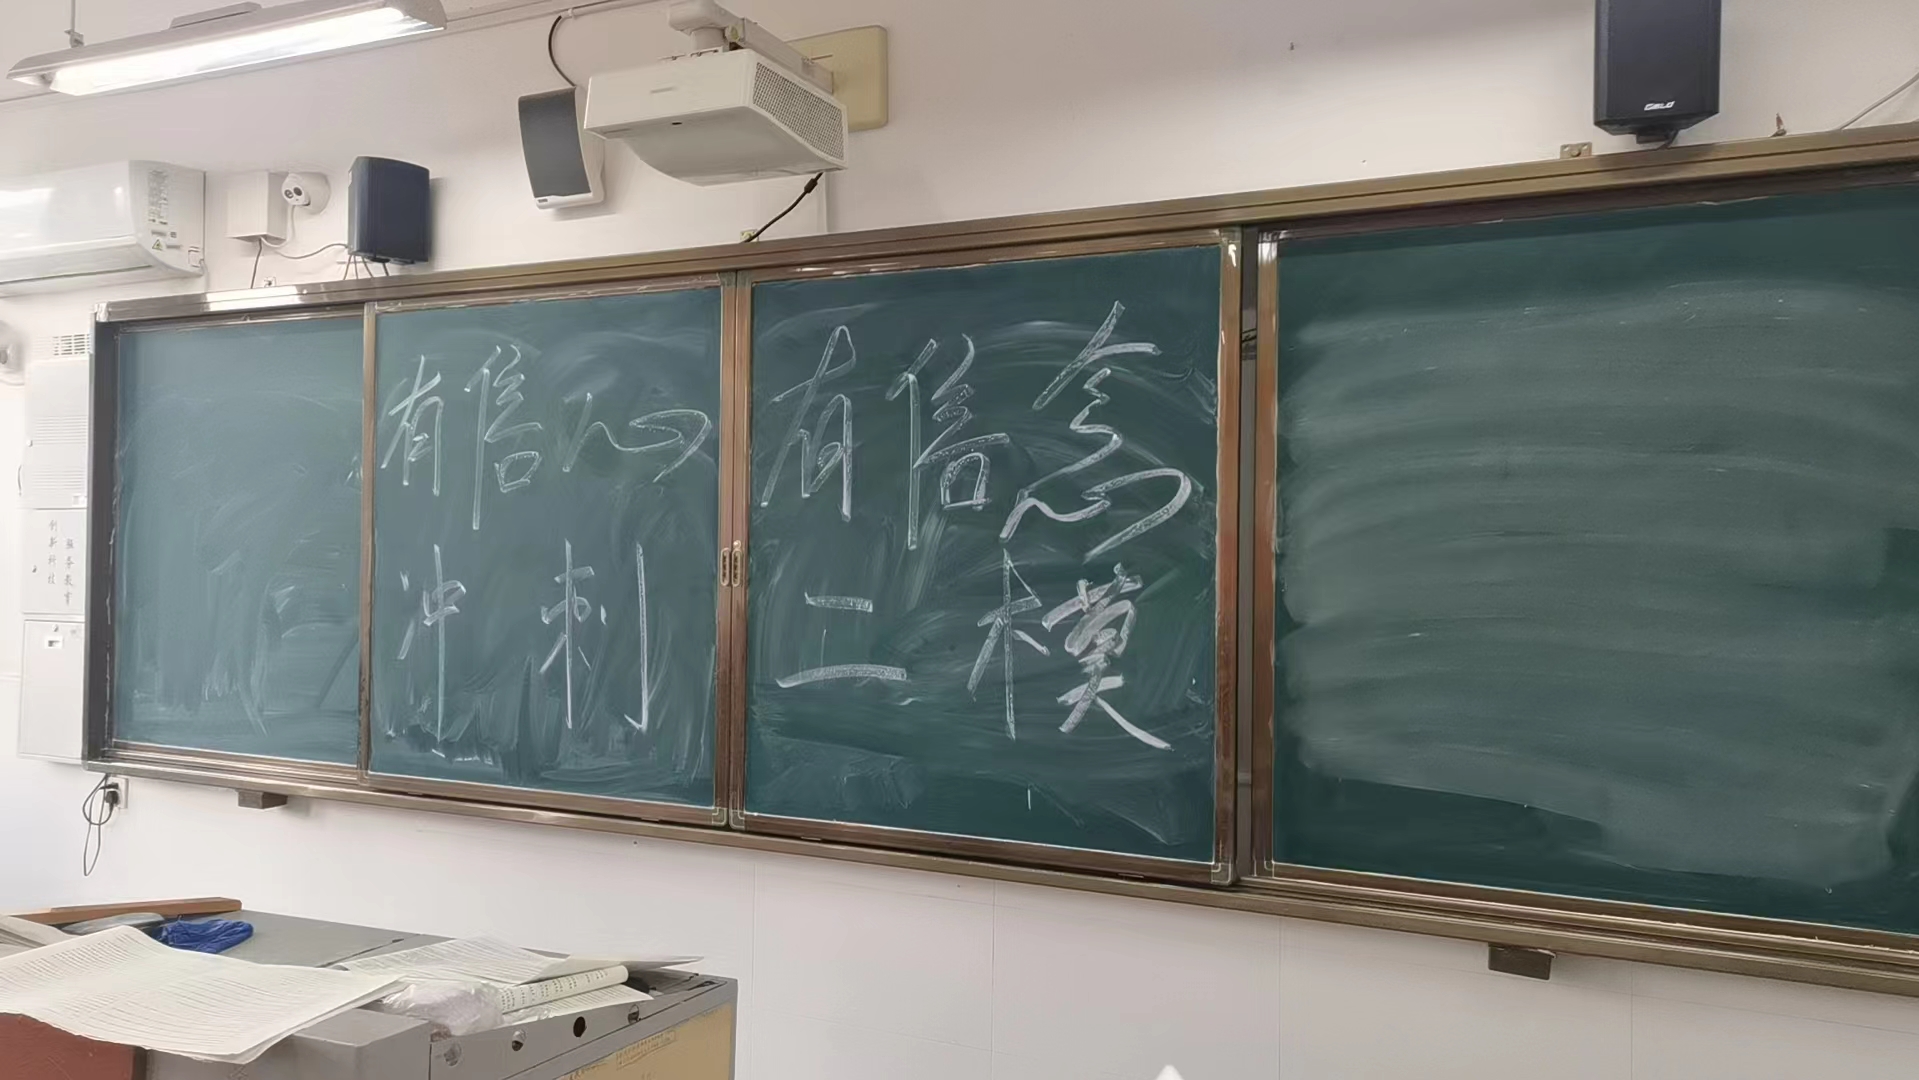 有信心 有信念
冲刺 二模
创新科技
服务教育